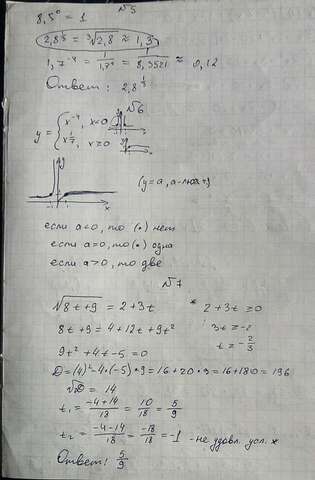 №5
8,5⁰ = 1
2,8^(1/3) = ³√2,8 ≈ 1,3
1,7⁻⁴ = 1/1,7⁴ = 1/8,3521 ≈ 0,12
Ответ: 2,8^(1/3)
№6
y = { x⁻⁴, x<0
x^(1/4), x ≥ 0
y
x
(y=a, a-любое)
если a<0, то (•) нет
если a=0, то (•) одна
если a>0, то две
№7
√(8t+9) = 2+3t * 2+3t ≥ 0
8t+9 = 4+12t+9t² 3t ≥ -2
9t²+4t-5=0 t ≥ -2/3
D=(4)²-4•(-5)•9=16+20•9=16+180=196
√D = 14
t₁ = (-4+14)/18 = 10/18 = 5/9
t₂ = (-4-14)/18 = -18/18 = -1 - не удовл. усл. *
Ответ: 5/9